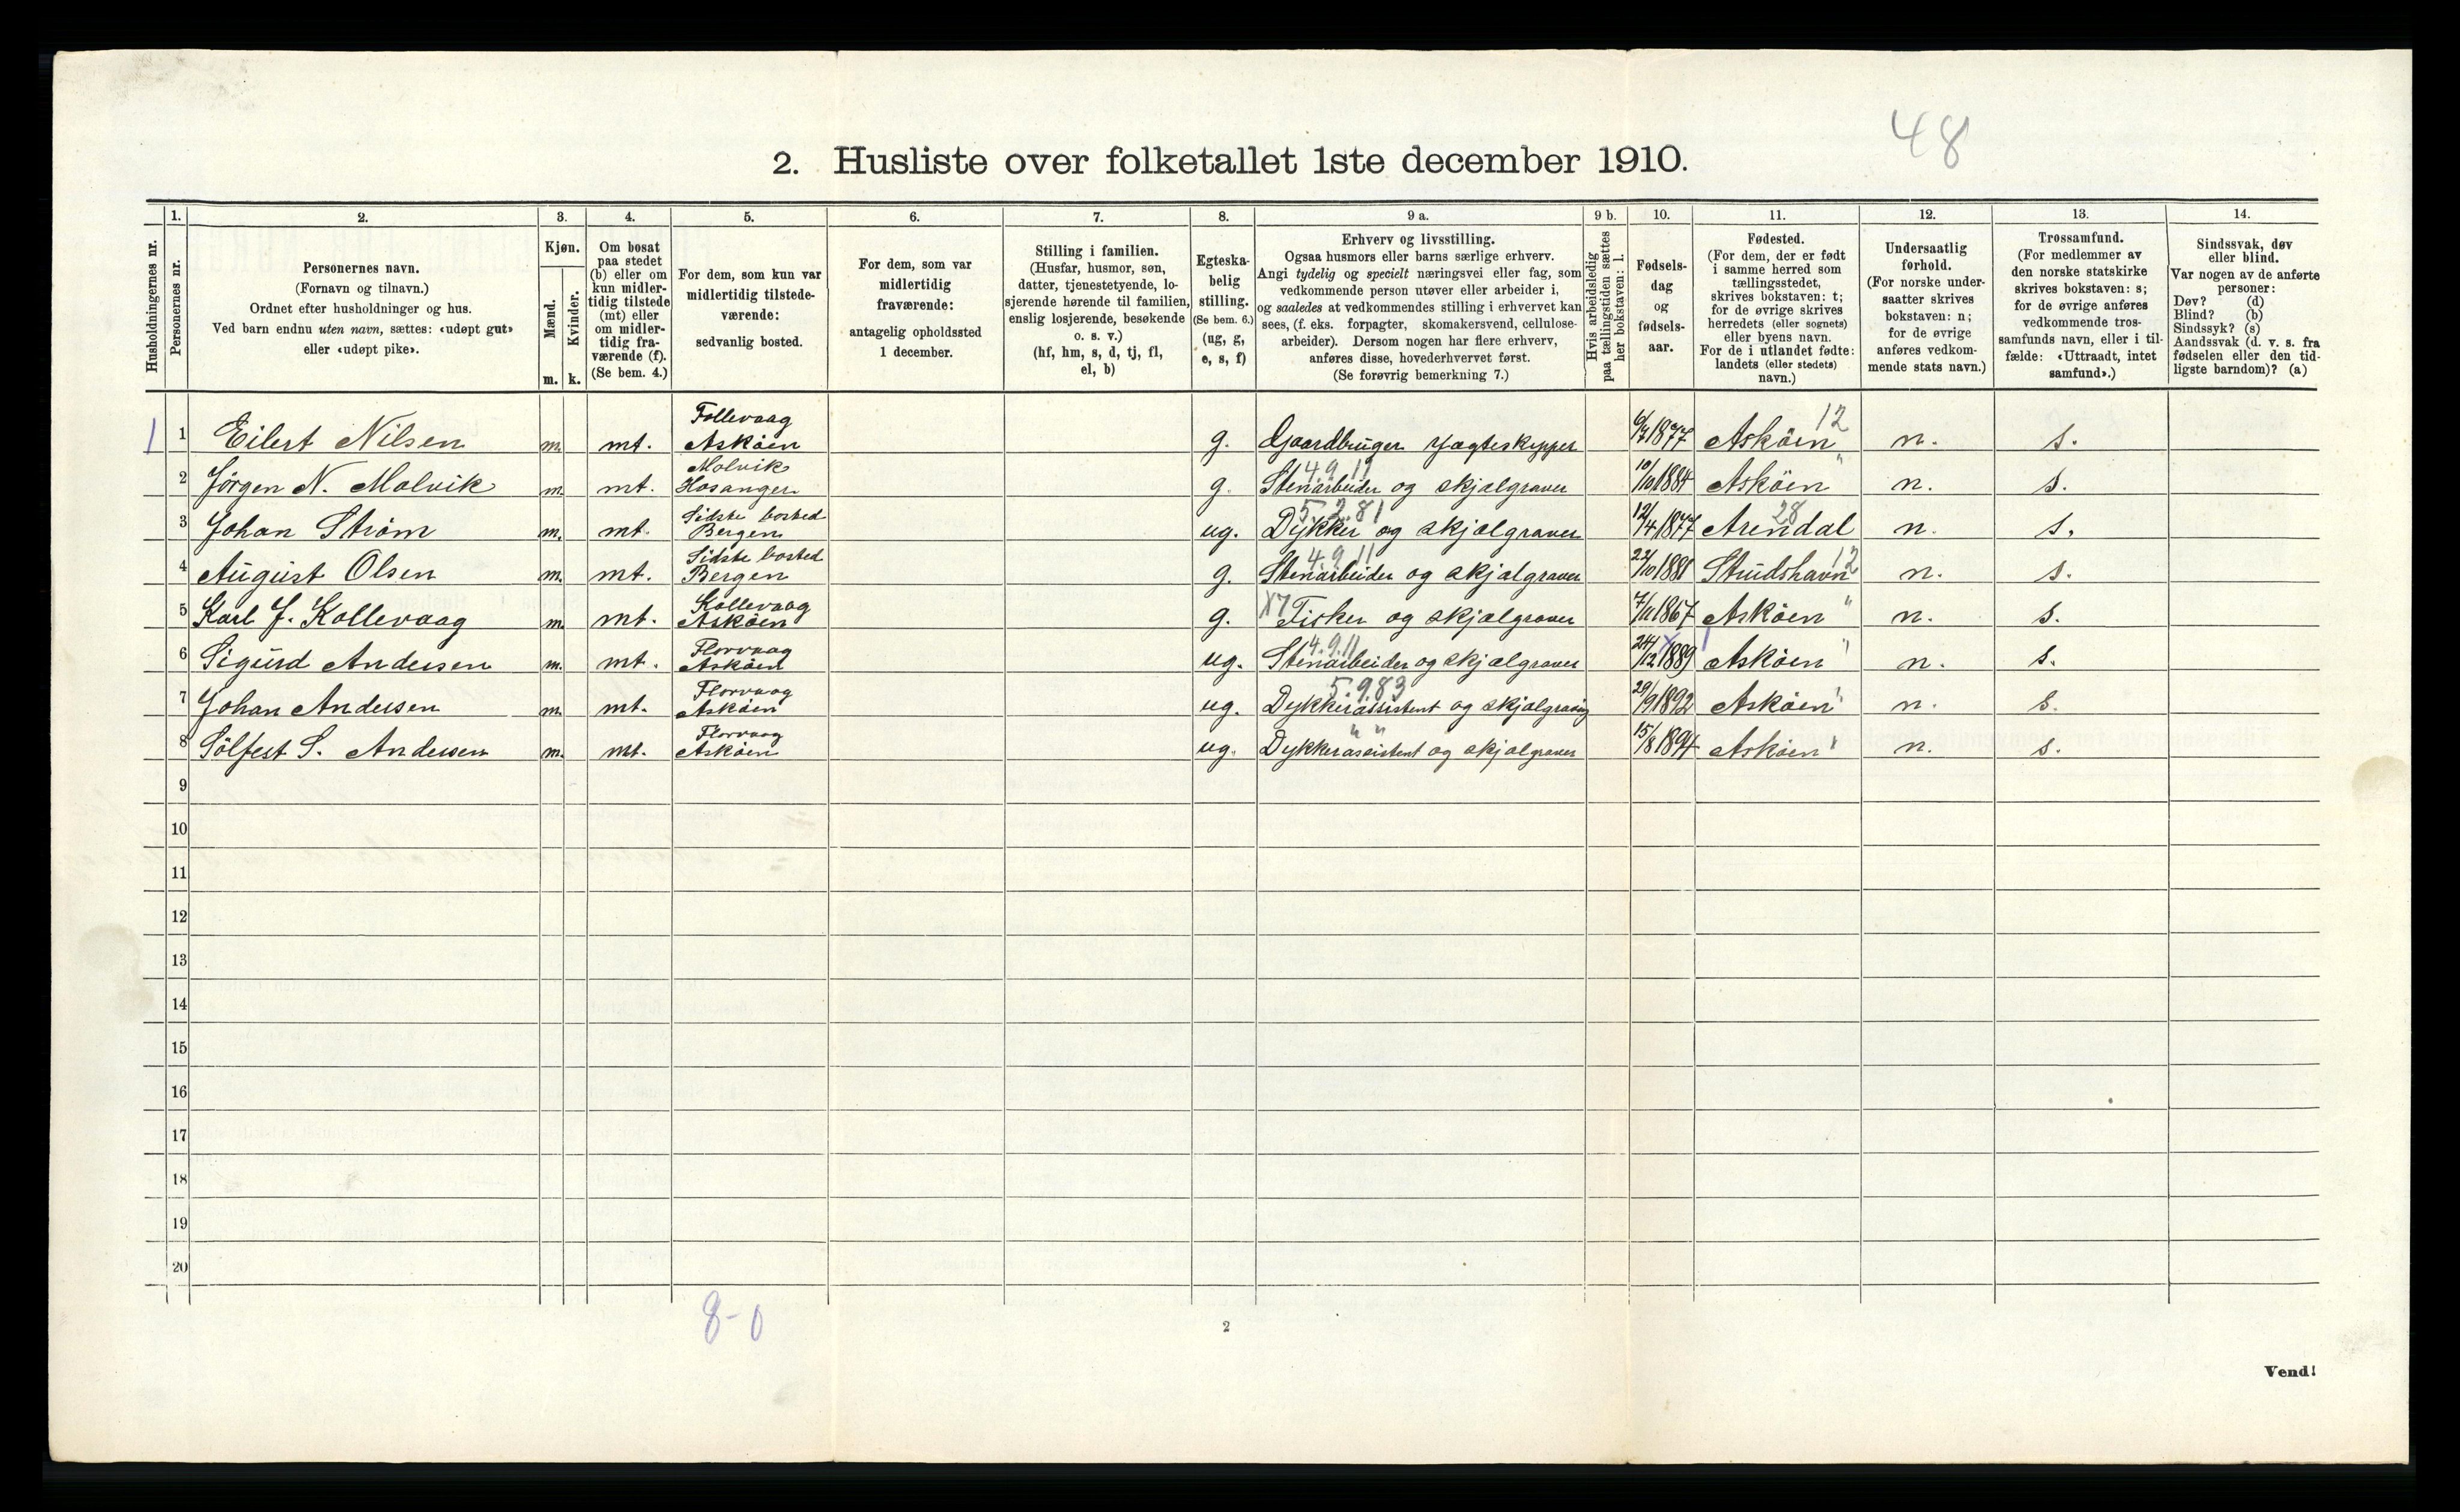 48
2. Husliste over folketallet 1ste december 1910.
Husholdningernes nr.
1.
Personernes nr.
2.
Personernes navn.
(Fornavn og tilnavn.)
Ordnet efter husholdninger og hus.
Ved barn endnu uten navn, sættes: «udøpt gut»
eller «udøpt pike».
3.
Kjøn.
Mænd.
Kvinder.
m. k.
4.
Om bosat
paa stedet
(b) eller om
kun midler-
tidig tilstede
(mt) eller
om midler-
tidig fra-
værende (f).
(Se bem. 4.)
5.
For dem, som kun var
midlertidig tilstede-
værende:
sedvanlig bosted.
6.
For dem, som var
midlertidig
fraværende:
antagelig opholdssted
1 december.
7.
Stilling i familien.
(Husfar, husmor, søn,
datter, tjenestetyende, lo-
sjerende hørende til familien,
enslig losjerende, besøkende
o. s. v.)
(hf, hm, s, d, tj, fl,
el, b)
8.
Egteska-
belig
stilling.
(Se bem. 6.)
(ug, g,
e, s, f)
9 a.
Erhverv og livsstilling.
Ogsaa husmors eller barns særlige erhverv.
Angi tydelig og specielt næringsvei eller fag, som
vedkommende person utøver eller arbeider i,
og saaledes at vedkommendes stilling i erhvervet kan
sees, (f. eks. forpagter, skomakersvend, cellulose-
arbeider). Dersom nogen har flere erhverv,
anføres disse, hovederhvervet først.
(Se forøvrig bemerkning 7.)
9 b.
Hvis arbeidsledig
paa tællingstiden sættes
her bokstaven: l.
10.
Fødsels-
dag
og
fødsels-
aar.
11.
Fødested.
(For dem, der er født
i samme herred som
tællingsstedet,
skrives bokstaven: t;
for de øvrige skrives
herredets (eller sognets)
eller byens navn.
For de i utlandet fødte:
landets (eller stedets)
navn.)
12.
Undersaatlig
forhold.
(For norske under-
saatter skrives
bokstaven: n;
for de øvrige
anføres vedkom-
mende stats navn.)
13.
Trossamfund.
(For medlemmer av
den norske statskirke
skrives bokstaven: s;
for de øvrige anføres
vedkommende tros-
samfunds navn, eller i til-
fælde: «Uttraadt, intet
samfund».)
14.
Sindssvak, døv
eller blind.
Var nogen av de anførte
personer:
Døv? (d)
Blind? (b)
Sindssyk? (s)
Aandssvak (d. v. s. fra
fødselen eller den tid-
ligste barndom)? (a)
1 1 Eilert Nilsen m. mt. Follevaag Askøen g. Gaardbruger Jagteskipper 6/7 1877 Askøen 12 n. s.
2 Jørgen N. Molvik m. mt. Molvik Hosanger g. Stenarbeider og skjælgraver 4.9.11 1884 Askøen " n. s.
3 Johan Strøm m. mt. Sidste bosted Bergen ug. Dykker og skjælgraver 5.2.81 12/4 1877 Arendal 28 n. s.
4 August Olsen m. mt. Sidste bosted Bergen g. Stenarbeider og skjælgraver 4.9.11 22/10 1881 Strudshavn 12 n. s.
5 Karl J. Kollevaag m. mt. Kollevaag Askøen g. X7 Fisker og skjælgraver 7/11 1867 Askøen " n. s.
6 Sigurd Andersen m. mt. Florvaag Askøen ug. Stenarbeider og skjælgraver 4.9.11 24/12 1889 Askøen " n. s.
7 Johan Andersen m. mt. Florvaag Askøen ug. Dykkerassistent og skjælgraving 5.9.83 29/9 1892 Askøen " n. s.
8 Sölfest S. Andersen m. mt. Florvaag Askøen ug. Dykkerassistent og skjælgraver " " 15/8 1894 Askøen " n. s.
9
10
11
12
13
14
15
16
17
18
19
20
8-0
2
Vend!